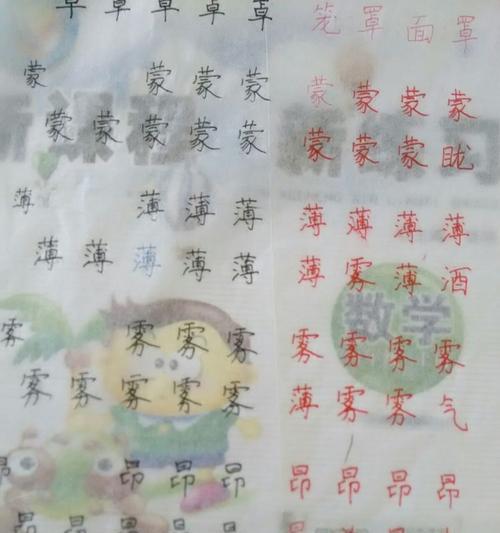 罩 罩 罩 罩 罩 笼 罩 面 罩
蒙 蒙 蒙 蒙 蒙 蒙 蒙 蒙
蒙 蒙 蒙 蒙 蒙 蒙 蒙 蒙 眬
薄 薄 薄 薄 薄 薄 薄 薄
薄 薄 薄 薄 薄 薄 雾 薄 酒
数学
雾 雾 雾 雾 雾 雾 雾 雾
雾 雾 雾 雾 雾 薄 雾 雾 气
昂 昂 昂 昂 昂 昂 昂 昂